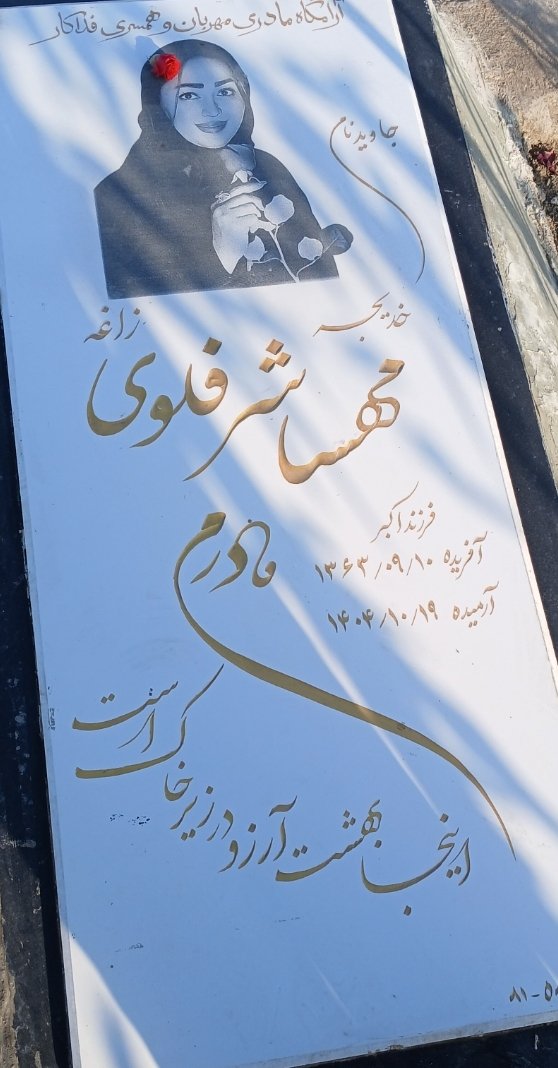 آرامگاه مادری مهربان و همسری فداکار
جاویدنام
خدیجه
زاغه
مهسا شرفلوی
فرزند اکبر
آفریده ۱۳۶۳/۰۹/۱۰
آرمیده ۱۴۰۴/۱۰/۱۹
مادرم
اینجا بهشت آرزو در زیر خاک است